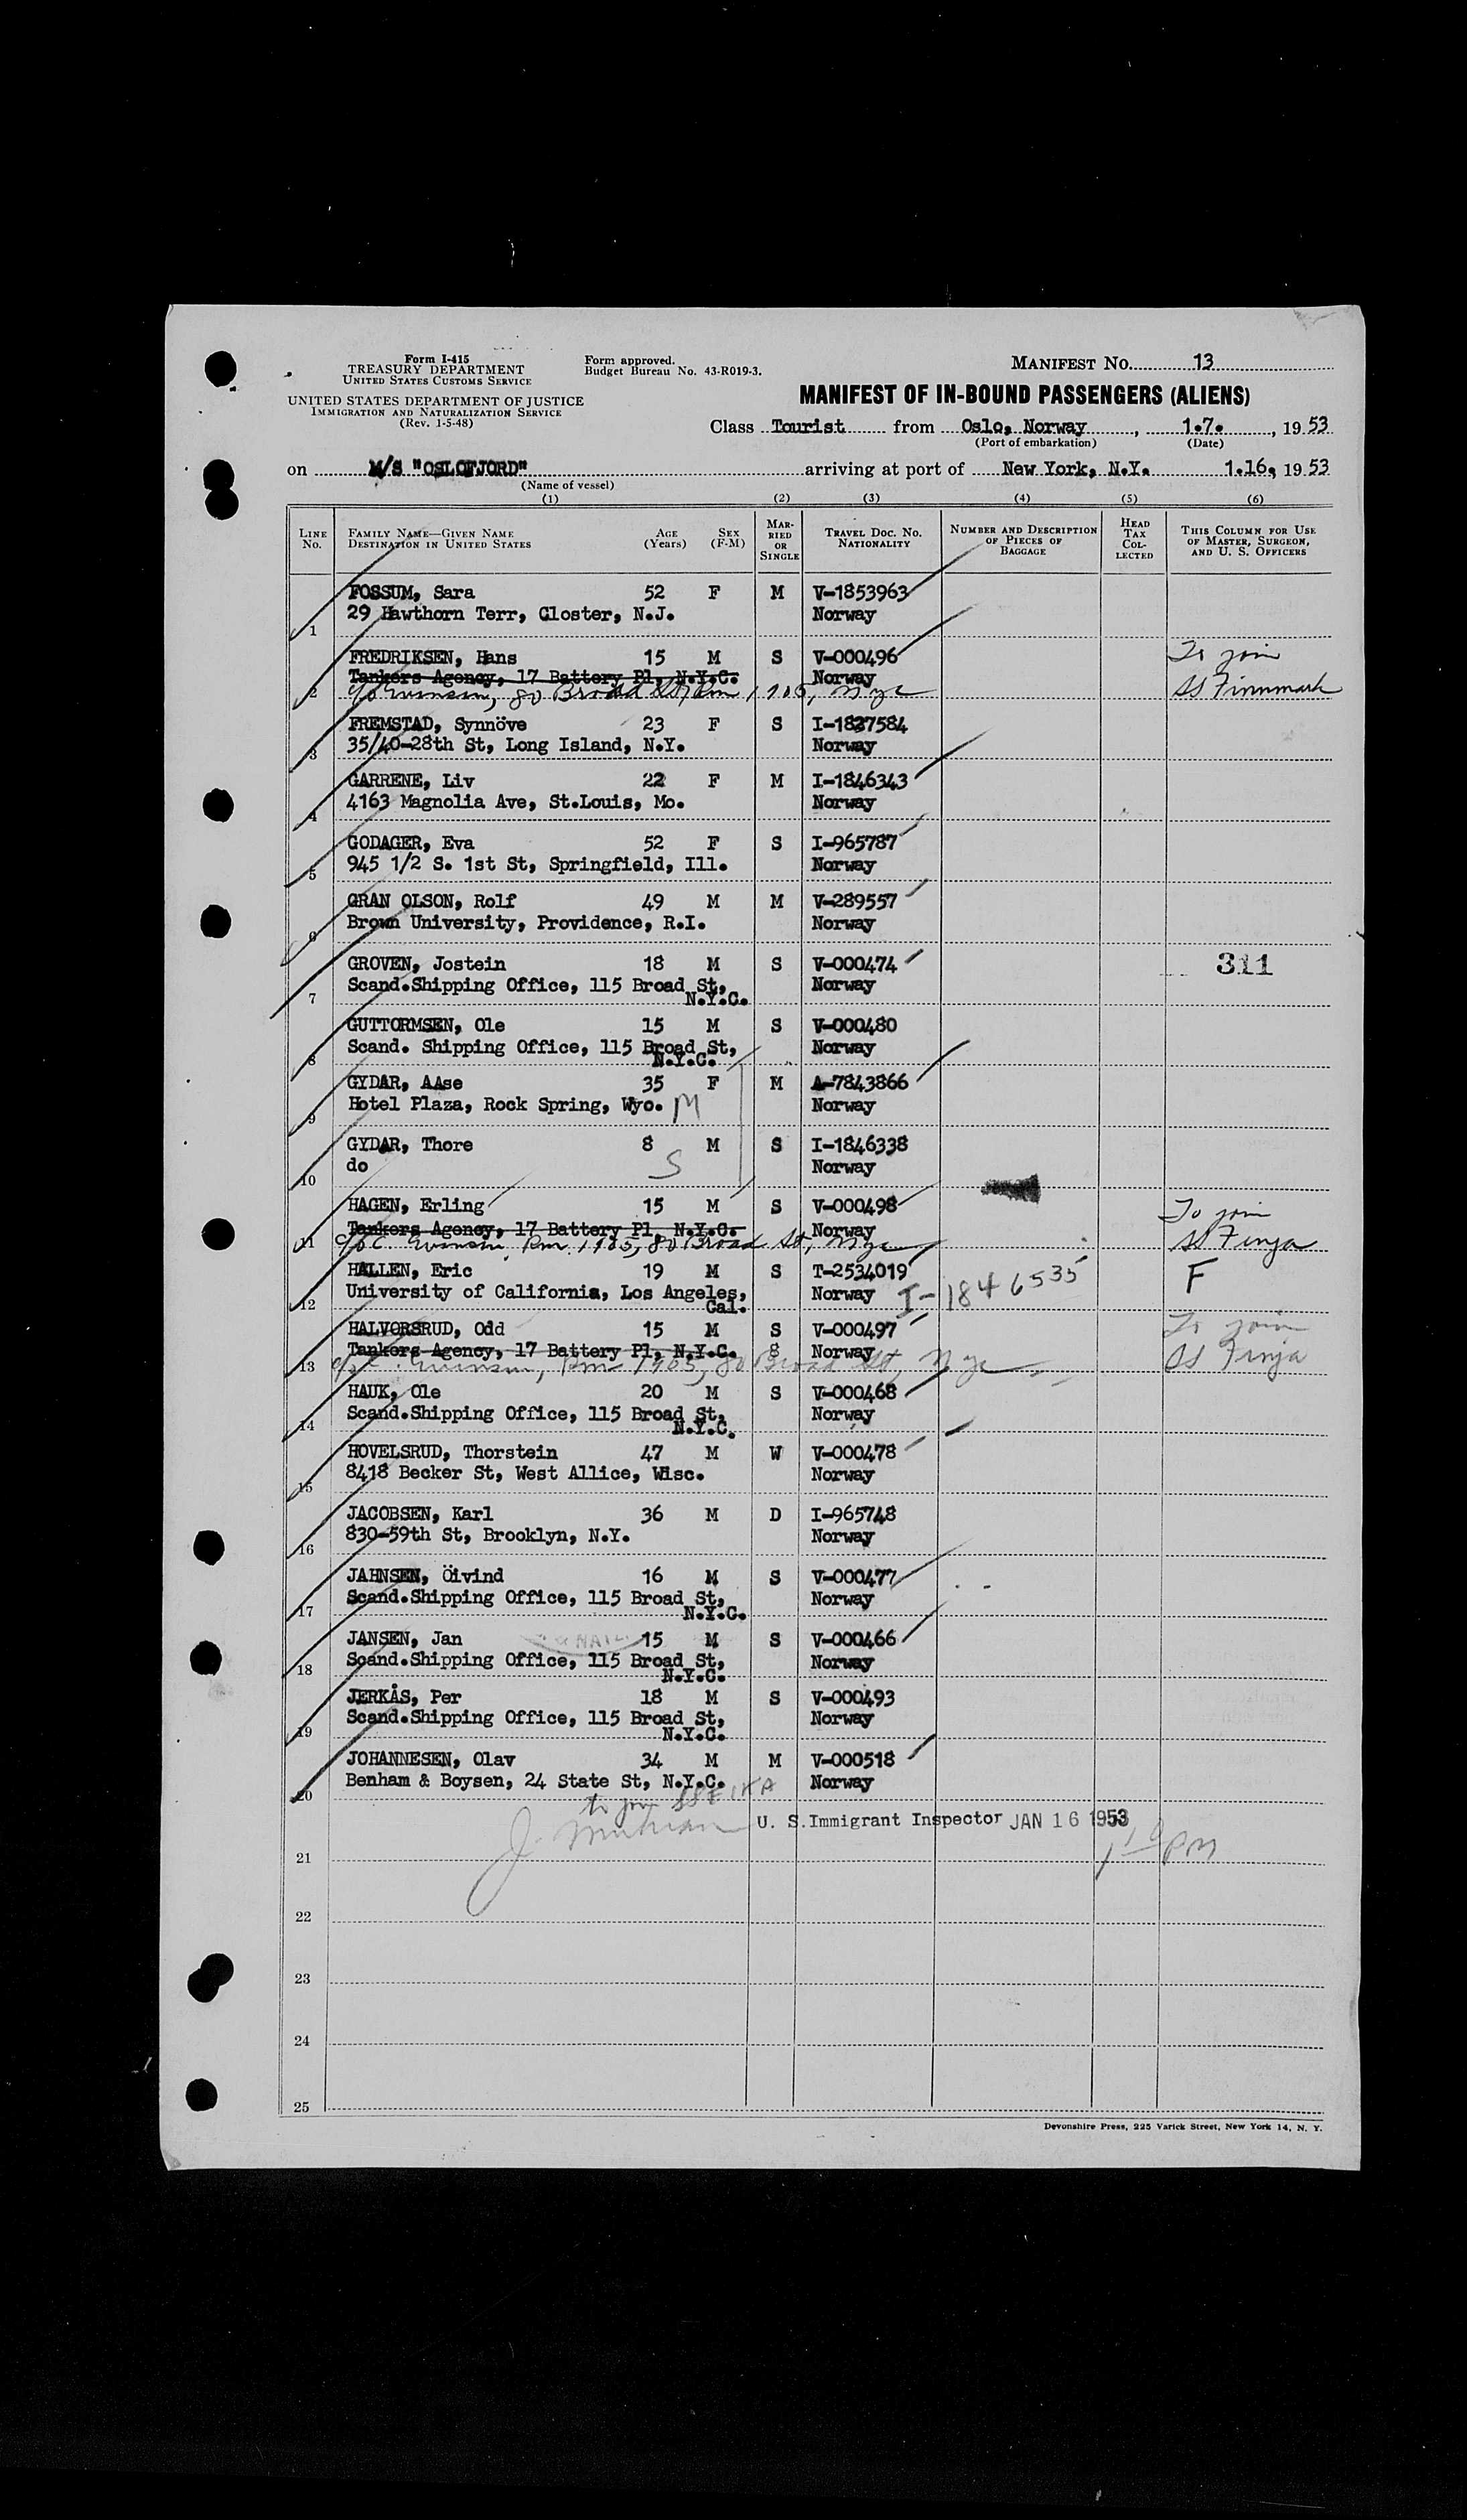 Form I-415
TREASURY DEPARTMENT
UNITED STATES CUSTOMS SERVICE
UNITED STATES DEPARTMENT OF JUSTICE
IMMIGRATION AND NATURALIZATION SERVICE
(Rev. 1-5-48)
Form approved.
Budget Bureau No. 43-R019-3.
MANIFEST No. 13
MANIFEST OF IN-BOUND PASSENGERS (ALIENS)
Class Tourist from Oslo, Norway, 1.7., 19 53
(Port of embarkation) (Date)
on M/S "OSLOFJORD" arriving at port of New York, N.Y. 1.16, 19 53
(Name of vessel)
(1) (2) (3) (4) (5) (6)
LINE No.
FAMILY NAME—GIVEN NAME
DESTINATION IN UNITED STATES
AGE (Years)
SEX (F-M)
MARRIED OR SINGLE
TRAVEL DOC. No. NATIONALITY
NUMBER AND DESCRIPTION OF PIECES OF BAGGAGE
HEAD TAX COLLECTED
THIS COLUMN FOR USE OF MASTER, SURGEON, AND U. S. OFFICERS
FOSSUM, Sara 52 F M V-1853963
1 29 Hawthorn Terr, Closter, N.J. Norway
FREDRIKSEN, Hans 15 M S V-000496 To join
Tankers Agency, 17 Battery Pl, N.Y.C. Norway
2 80 Broad St, Rm 1705, Nyc SS Finnmark
FREMSTAD, Synnöve 23 F S I-1827584
3 35/40-28th St, Long Island, N.Y. Norway
GARRENE, Liv 22 F M I-1846343
4 4163 Magnolia Ave, St.Louis, Mo. Norway
GODAGER, Eva 52 F S I-965787
5 945 1/2 S. 1st St, Springfield, Ill. Norway
GRAN OLSON, Rolf 49 M M V-289557
6 Brown University, Providence, R.I. Norway
GROVEN, Jostein 18 M S V-000474 311
7 Scand.Shipping Office, 115 Broad St, Norway
N.Y.C.
GUTTORMSEN, Ole 15 M S V-000480
8 Scand. Shipping Office, 115 Broad St, Norway
N.Y.C.
GYDAR, AAse 35 F M A-7843866
9 Hotel Plaza, Rock Spring, Wyo. M Norway
GYDAR, Thore 8 M S I-1846338
10 do S Norway
HAGEN, Erling 15 M S V-000498 To join
Tankers Agency, 17 Battery Pl, N.Y.C. Norway
11 Rm 1705, 80 Broad St, Nyc SS Finja
HALLEN, Eric 19 M S T-2534019 F
12 University of California, Los Angeles, Norway I-1846535
Cal.
HALVORSRUD, Odd 15 M S V-000497 To join
Tankers Agency, 17 Battery Pl, N.Y.C. S Norway
13 Rm 1705, 80 Broad St, Nyc SS Finja
HAUK, Ole 20 M S V-000468
14 Scand.Shipping Office, 115 Broad St, Norway
N.Y.C.
HOVELSRUD, Thorstein 47 M W V-000478
15 8418 Becker St, West Allice, Wisc. Norway
JACOBSEN, Karl 36 M D I-965748
16 830-59th St, Brooklyn, N.Y. Norway
JAHNSEN, Öivind 16 M S V-000477
17 Scand.Shipping Office, 115 Broad St, Norway
N.Y.C.
JANSEN, Jan 15 M S V-000466
18 Scand.Shipping Office, 115 Broad St, Norway
N.Y.C.
JERKÅS, Per 18 M S V-000493
19 Scand.Shipping Office, 115 Broad St, Norway
N.Y.C.
JOHANNESEN, Olav 34 M M V-000518
20 Benham & Boysen, 24 State St, N.Y.C. Norway
to join SS
U. S. Immigrant Inspector JAN 16 1953
PM
21
22
23
24
25
Devonshire Press, 225 Varick Street, New York 14, N. Y.